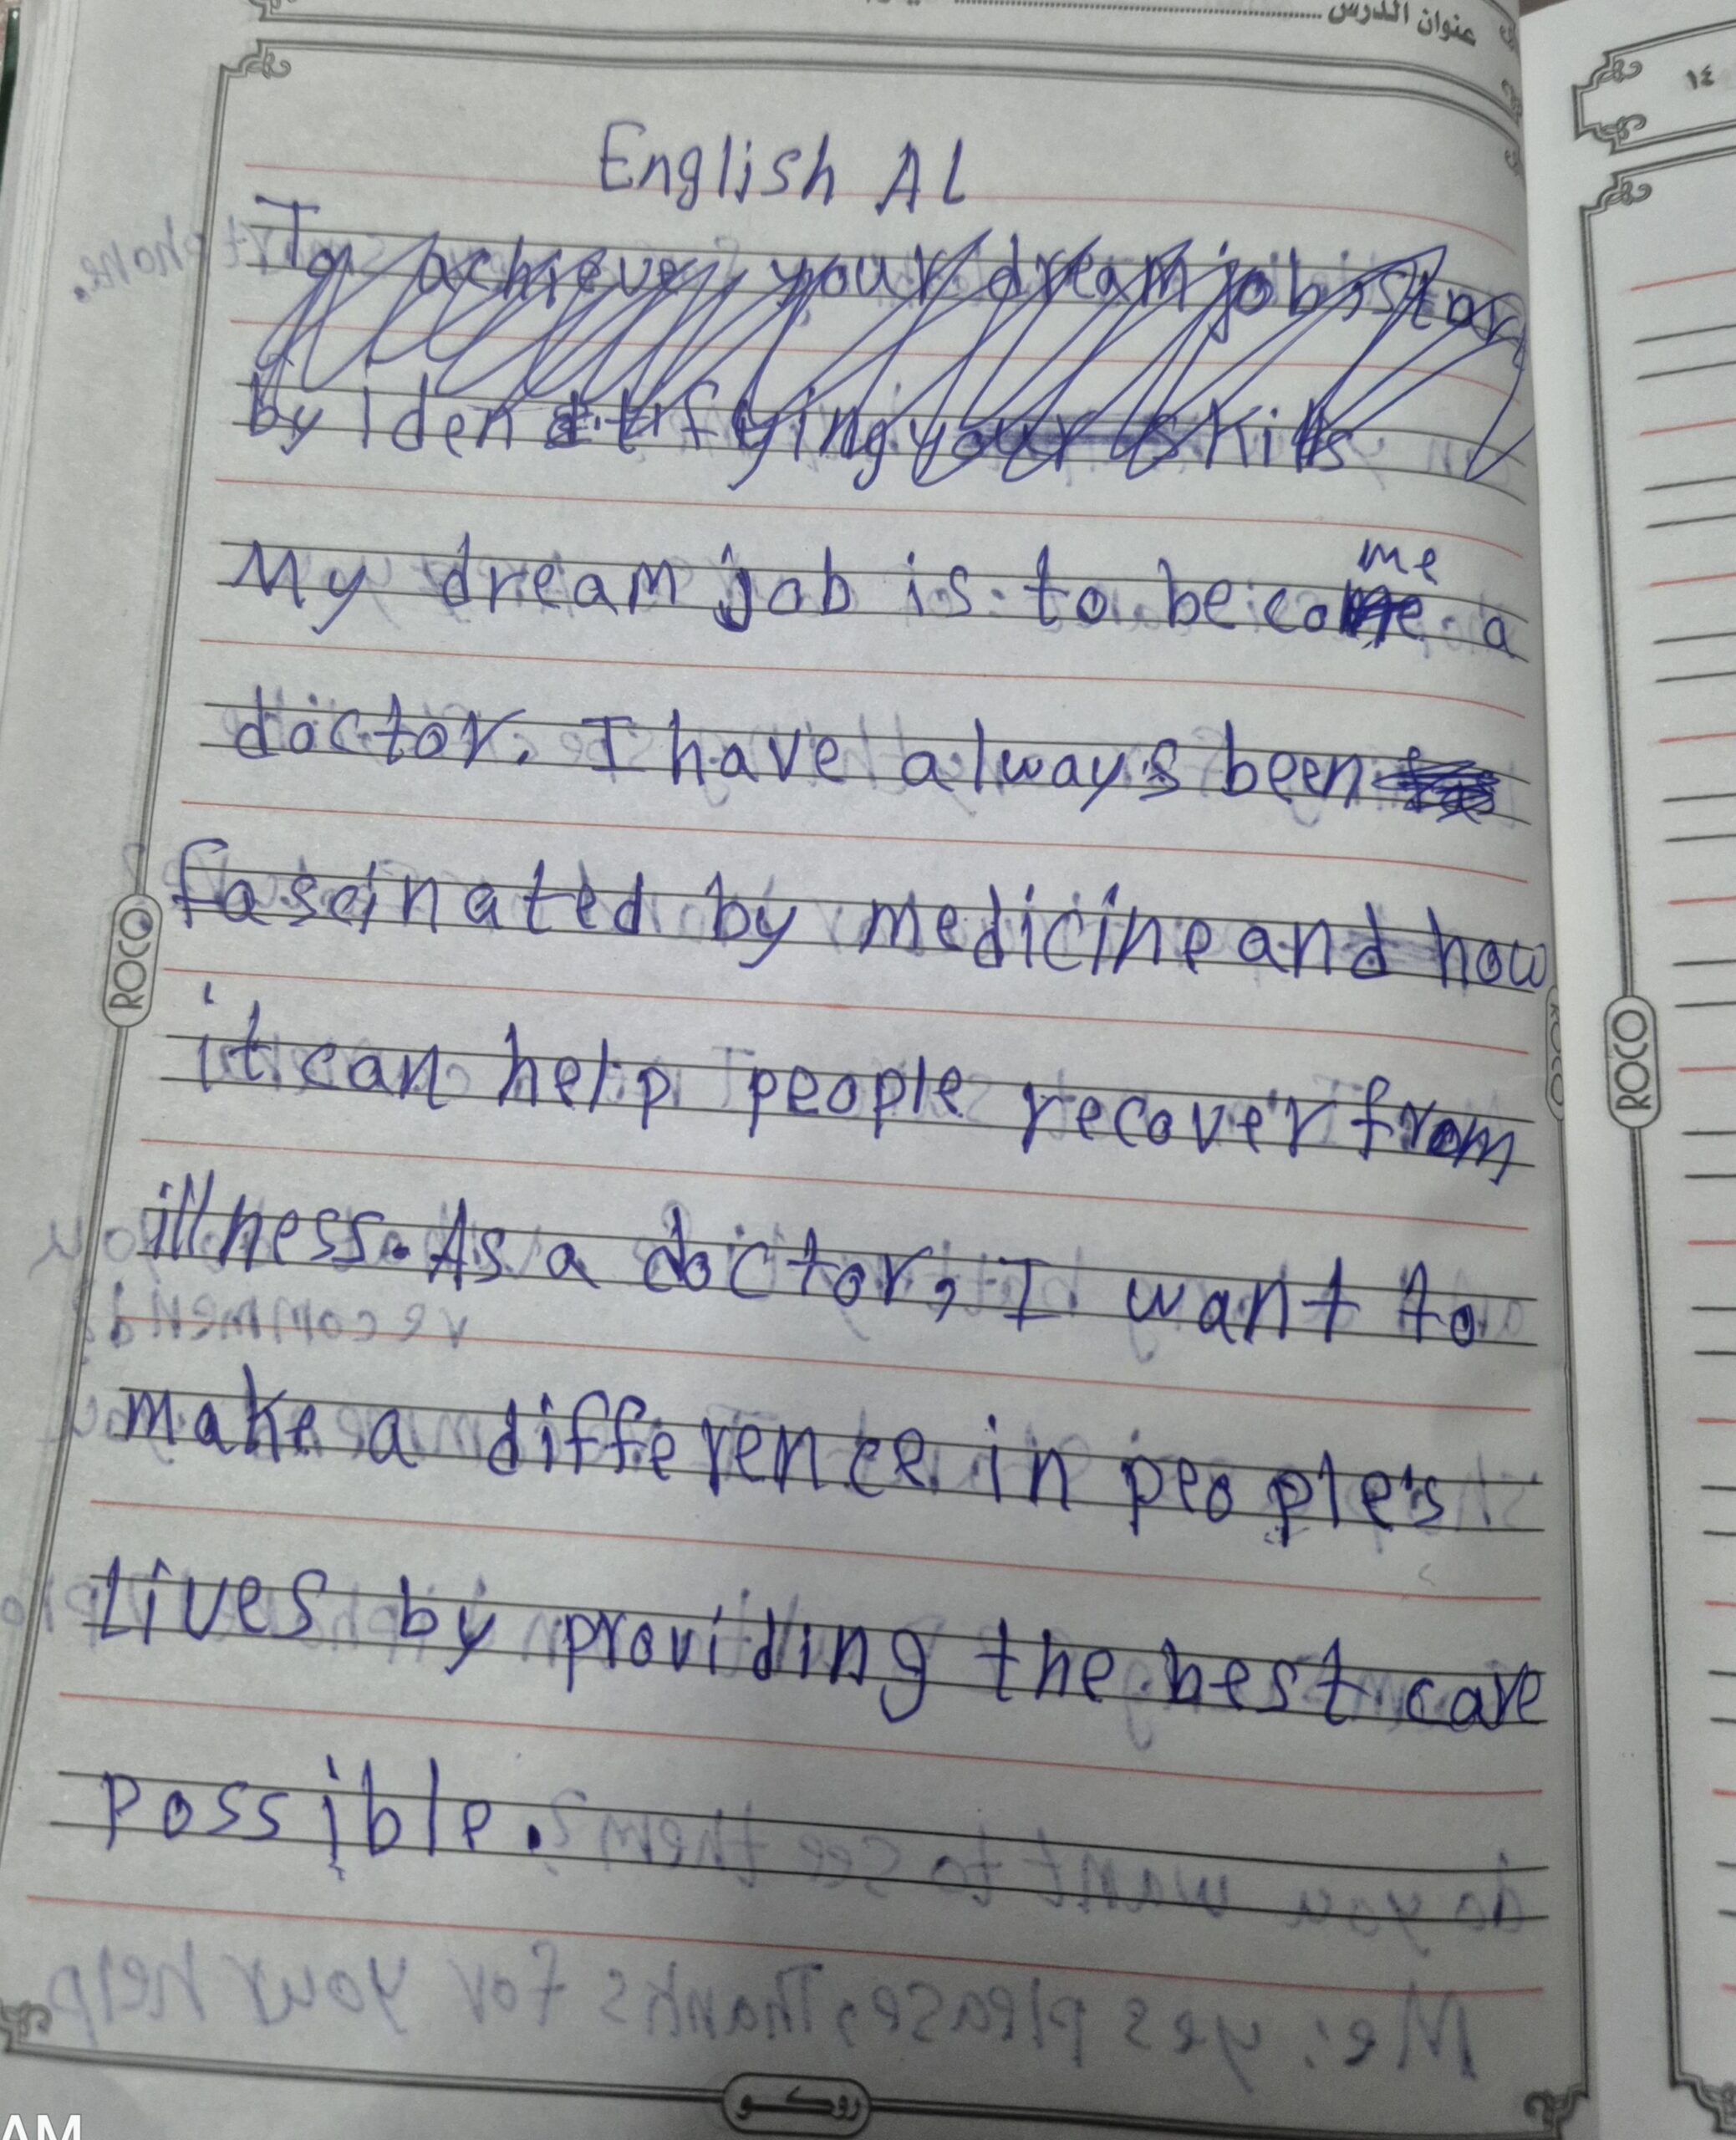 عنوان الدرس
١٤
English AL
To achieve your dream job, star
by identifying your skills
My dream job is to become a
me
doctor. I have always been
fascinated by medicine and how
it can help people recover from
illness. As a doctor, I want to
make a difference in people's
Lives by providing the best care
possible.
ROCO
ROCO
ROCO
روكو
AM